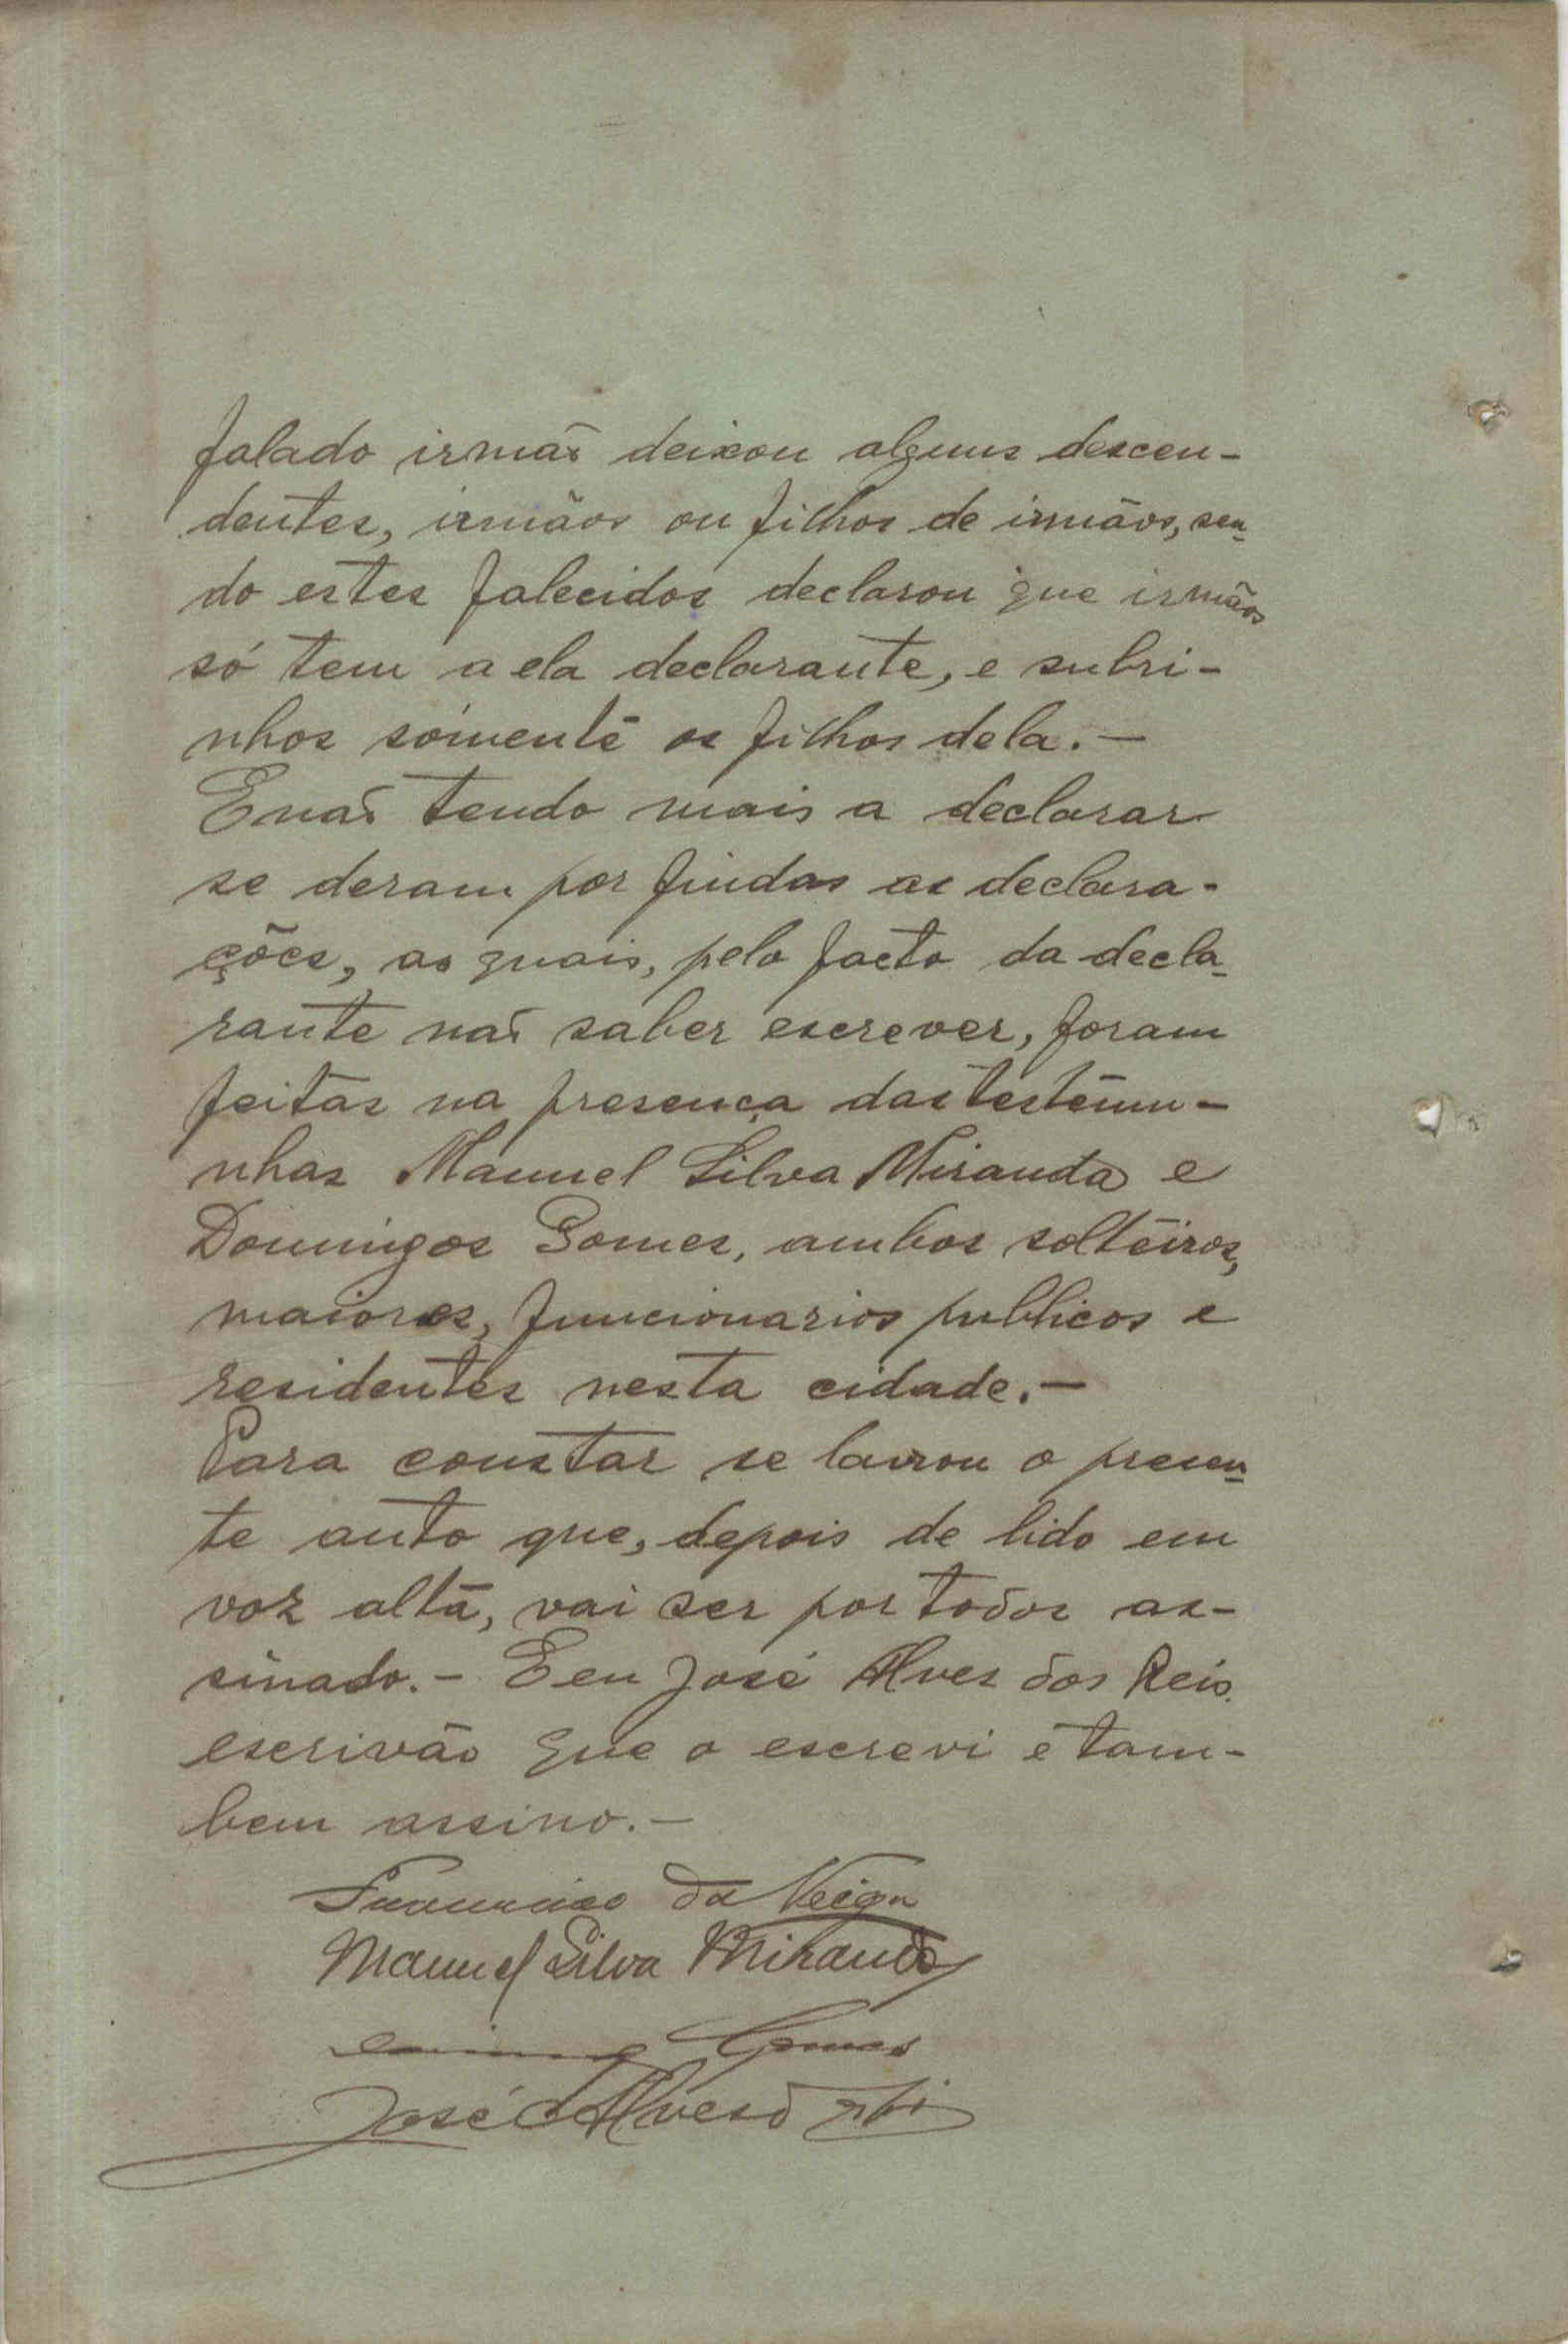 falado irmão deixou alguns descen-
dentes, irmãos ou filhos de irmãos, sen-
do estes falecidos declarou que irmãos
só tem a ela declarante, e subri-
nhos sómente os filhos dela.-
E não tendo mais a declarar
se deram por findas as declara-
ções, as quais, pelo facto da decla-
rante não saber escrever, foram
feitas na presença das testemu-
nhas Manuel Silva Miranda e
Domingos Gomes, ambos solteiros,
maiores, funcionarios publicos e
residentes nesta cidade.-
Para constar se lavrou o presen-
te auto que, depois de lido em
voz alta, vai ser por todos as-
sinado.- E eu José Alves dos Reis
escrivão que o escrevi e tam-
bem assino.-
da Veiga
Manuel Silva Miranda
Gomes
José Alves